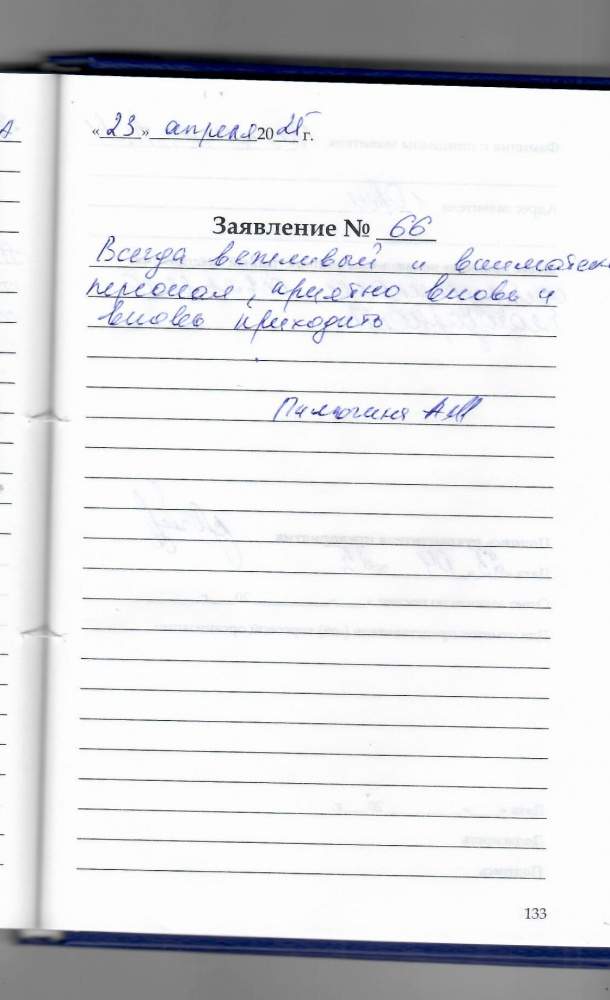 «23» апреля 2021 г.
Заявление № 66
Всегда вежливый и внимател
персонал, приятно вновь и
вновь приходить
133